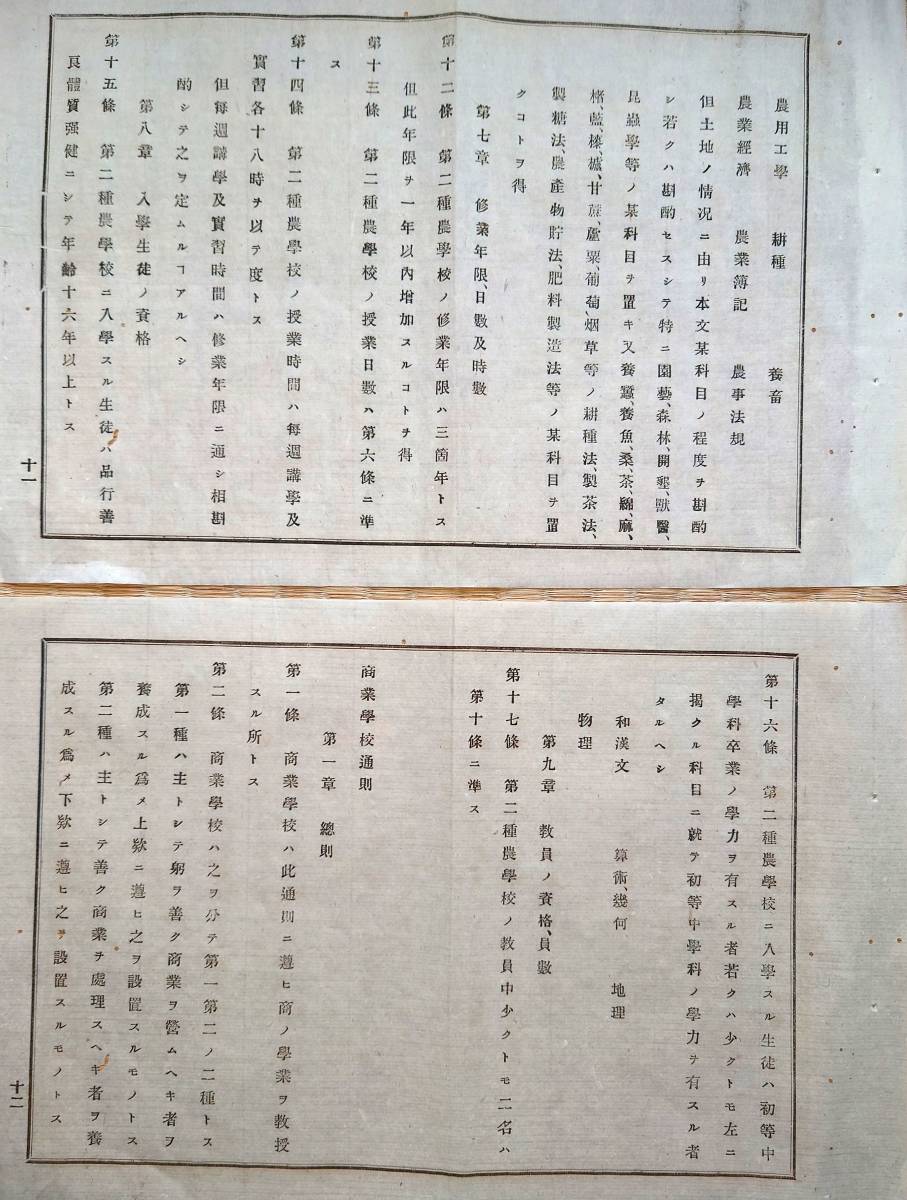 農用工學　耕種　養畜
農業經濟　農業簿記　農事法規
但土地ノ情況ニ由リ本文某科目ノ程度ヲ斟酌
シ若クハ斟酌セスシテ特ニ園藝、森林、開墾、獸醫、
昆蟲學等ノ某科目ヲ置キ又養蠶、養魚、桑、茶、綿、麻、
楮、藍、榛、櫨、甘蔗、蘆粟、葡萄、烟草等ノ耕種法、製茶法、
製糖法、農產物貯法、肥料製造法等ノ某科目ヲ置
クコトヲ得
第七章　修業年限、日數及時數
第十二條　第二種農學校ノ修業年限ハ三箇年トス
但此年限ヲ一年以內增加スルコトヲ得
第十三條　第二種農學校ノ授業日數ハ第六條ニ準
ス
第十四條　第二種農學校ノ授業時間ハ每週講學及
實習各十八時ヲ以テ度トス
但每週講學及實習時間ハ修業年限ニ通シ相斟
酌シテ之ヲ定ムルコアルヘシ
第八章　入學生徒ノ資格
第十五條　第二種農學校ニ入學スル生徒ハ品行善
良體質强健ニシテ年齡十六年以上トス
十一
第十六條　第二種農學校ニ入學スル生徒ハ初等中
學科卒業ノ學力ヲ有スル者若クハ少クトモ左ニ
揭クル科目ニ就テ初等中學科ノ學力ヲ有スル者
タルヘシ
和漢文　算術、幾何　地理
物理
第九章　敎員ノ資格、員數
第十七條　第二種農學校ノ敎員中少クトモ二名ハ
第十條ニ準ス
商業學校通則
第一章　總則
第一條　商業學校ハ此通則ニ遵ヒ商ノ學業ヲ敎授
スル所トス
第二條　商業學校ハ之ヲ分テ第一第二ノ二種トス
第一種ハ主トシテ躬ヲ善ク商業ヲ營ムヘキ者ヲ
養成スル爲メ上欵ニ遵ヒ之ヲ設置スルモノトス
第二種ハ主トシテ善ク商業ヲ處理スヘキ者ヲ養
成スル爲メ下欵ニ遵ヒ之ヲ設置スルモノトス
十二